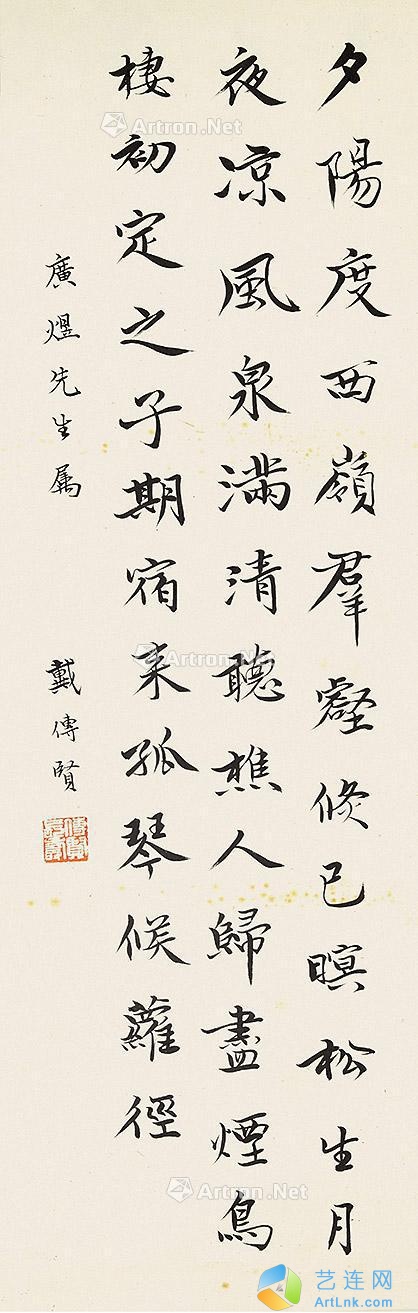 夕陽度西嶺羣壑倏已暝松生月
夜涼風泉滿清聽樵人歸盡煙鳥
棲初定之子期宿来孤琴候蘿徑
廣煜先生属
戴傳賢
Artron.Net
Artron.Net
Artron.Net
艺连网
ArtLnk.com